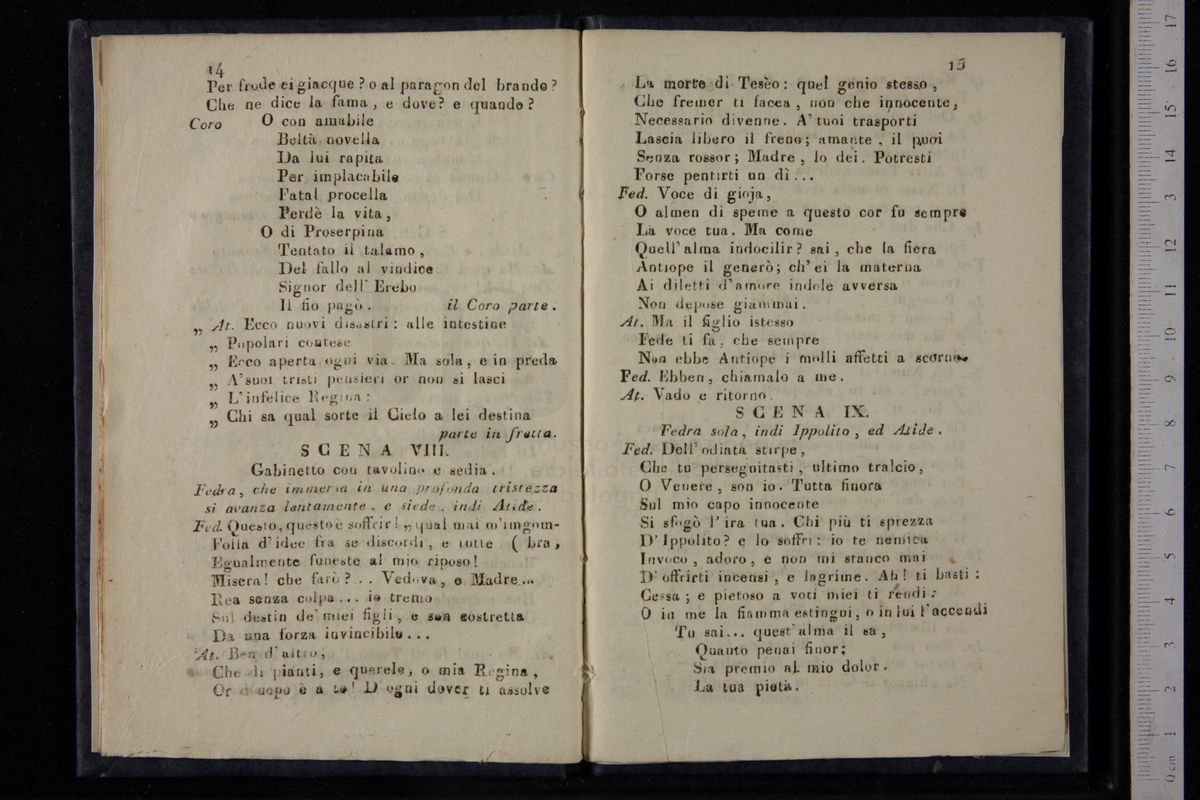 14
Per frode ei giacque ? o al paragon del brando ?
Che ne dice la fama , e dove ? e quando ?
Coro O con amabile
Beltà novella
Da lui rapita
Per implacabile
Fatal procella
Perdè la vita ,
O di Proserpina
Tentato il talamo ,
Del fallo al vindice
Signor dell' Erebo
Il fio pagò . il Coro parte .
„ At. Ecco nuovi disastri : alle intestine
„ Popolari contese
„ Ecco aperta ogni via . Ma sola , e in preda
„ A' suoi tristi pensieri or non si lasci
„ L' infelice Regina :
„ Chi sa qual sorte il Cielo a lei destina
parte in fretta .
SCENA VIII.
Gabinetto con tavolino e sedia .
Fedra , che immersa in una profonda tristezza
si avanza lentamente , e siede , indi Atide .
Fed. Questo , questo è soffrir ! „ qual mai m'ingom-
Folla d' idee fra se discordi , e tutte ( bra ,
Egualmente funeste al mio riposo !
Misera ! che farò ? . . Vedova , e Madre ...
Rea senza colpa ... io tremo
Sul destin de' miei figli , e son costretta
Da una forza invincibile ...
At. Ben d' altro ,
Che di pianti , e querele , o mia Regina ,
Or d' uopo è a te ! D' ogni dover ti assolve
15
La morte di Tesèo : quel genio stesso ,
Che fremer ti facea , non che innocente ,
Necessario divenne . A' tuoi trasporti
Lascia libero il freno ; amante , il puoi
Senza rossor ; Madre , lo dei . Potresti
Forse pentirti un dì ...
Fed. Voce di gioja ,
O almen di speme a questo cor fu sempre
La voce tua . Ma come
Quell' alma indocilir ? sai , che la fiera
Antiope il generò ; ch' ei la materna
Ai diletti d' amore indole avversa
Non depose giammai .
At. Ma il figlio istesso
Fede ti fa , che sempre
Non ebbe Antiope i molli affetti a scorno .
Fed. Ebben , chiamalo a me .
At. Vado e ritorno .
SCENA IX.
Fedra sola , indi Ippolito , ed Atide .
Fed. Dell' odiata stirpe ,
Che tu perseguitasti , ultimo tralcio ,
O Venere , son io . Tutta finora
Sul mio capo innocente
Si sfogò l' ira tua . Chi più ti sprezza
D' Ippolito ? e lo soffri : io te nemica
Invoco , adoro , e non mi stanco mai
D' offrirti incensi , e lagrime . Ah ! ti basti :
Cessa ; e pietoso a voti miei ti rendi :
O in me la fiamma estingui , o in lui l' accendi
Tu sai ... quest' alma il sa ,
Quanto penai finor ;
Sia premio al mio dolor .
La tua pietà .
0 cm 1 2 3 4 5 6 7 8 9 10 11 12 13 14 15 16 17